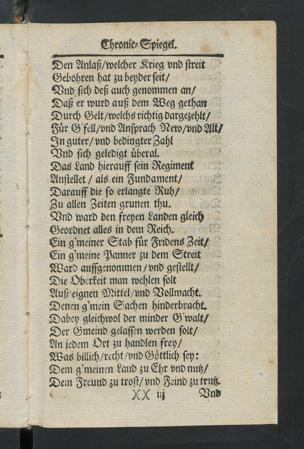 Chronic-Spiegel.
Den Anlaß/welcher Krieg vnd streit
Gebohren hat zu beyder seit/
Vnd sich deß auch genommen an/
Daß er wurd auß dem Weg gethan
Durch Gelt/welchs richtig dargezehlt/
Für G'fell/vnd Ansprach New/vnd Alt/
In guter/vnd bedingter Zahl
Vnd sich geledigt überal.
Das Land hierauff sein Regiment
Anstellet/ als ein Fundament/
Darauff die so erlangte Ruh/
Zu allen Zeiten grunen thu.
Vnd ward den freyen Landen gleich
Geordnet alles in dem Reich.
Ein g'meiner Stab für Fridens Zeit/
Ein g'meine Panner zu dem Streit
Ward auffgenommen/vnd gestellt/
Die Oberkeit man wehlen solt
Auß eignen Mittel/vnd Vollmacht.
Denen g'mein Sachen hinderbracht.
Dabey gleichwol der minder G'walt/
Der Gmeind gelassen werden solt/
An jedem Ort zu handlen frey/
Was billich/recht/vnd Göttlich sey:
Dem g'meinen Land zu Ehr vnd nutz/
Dem Freund zu trost/vnd Feind zu trutz.
XX iij Vnd